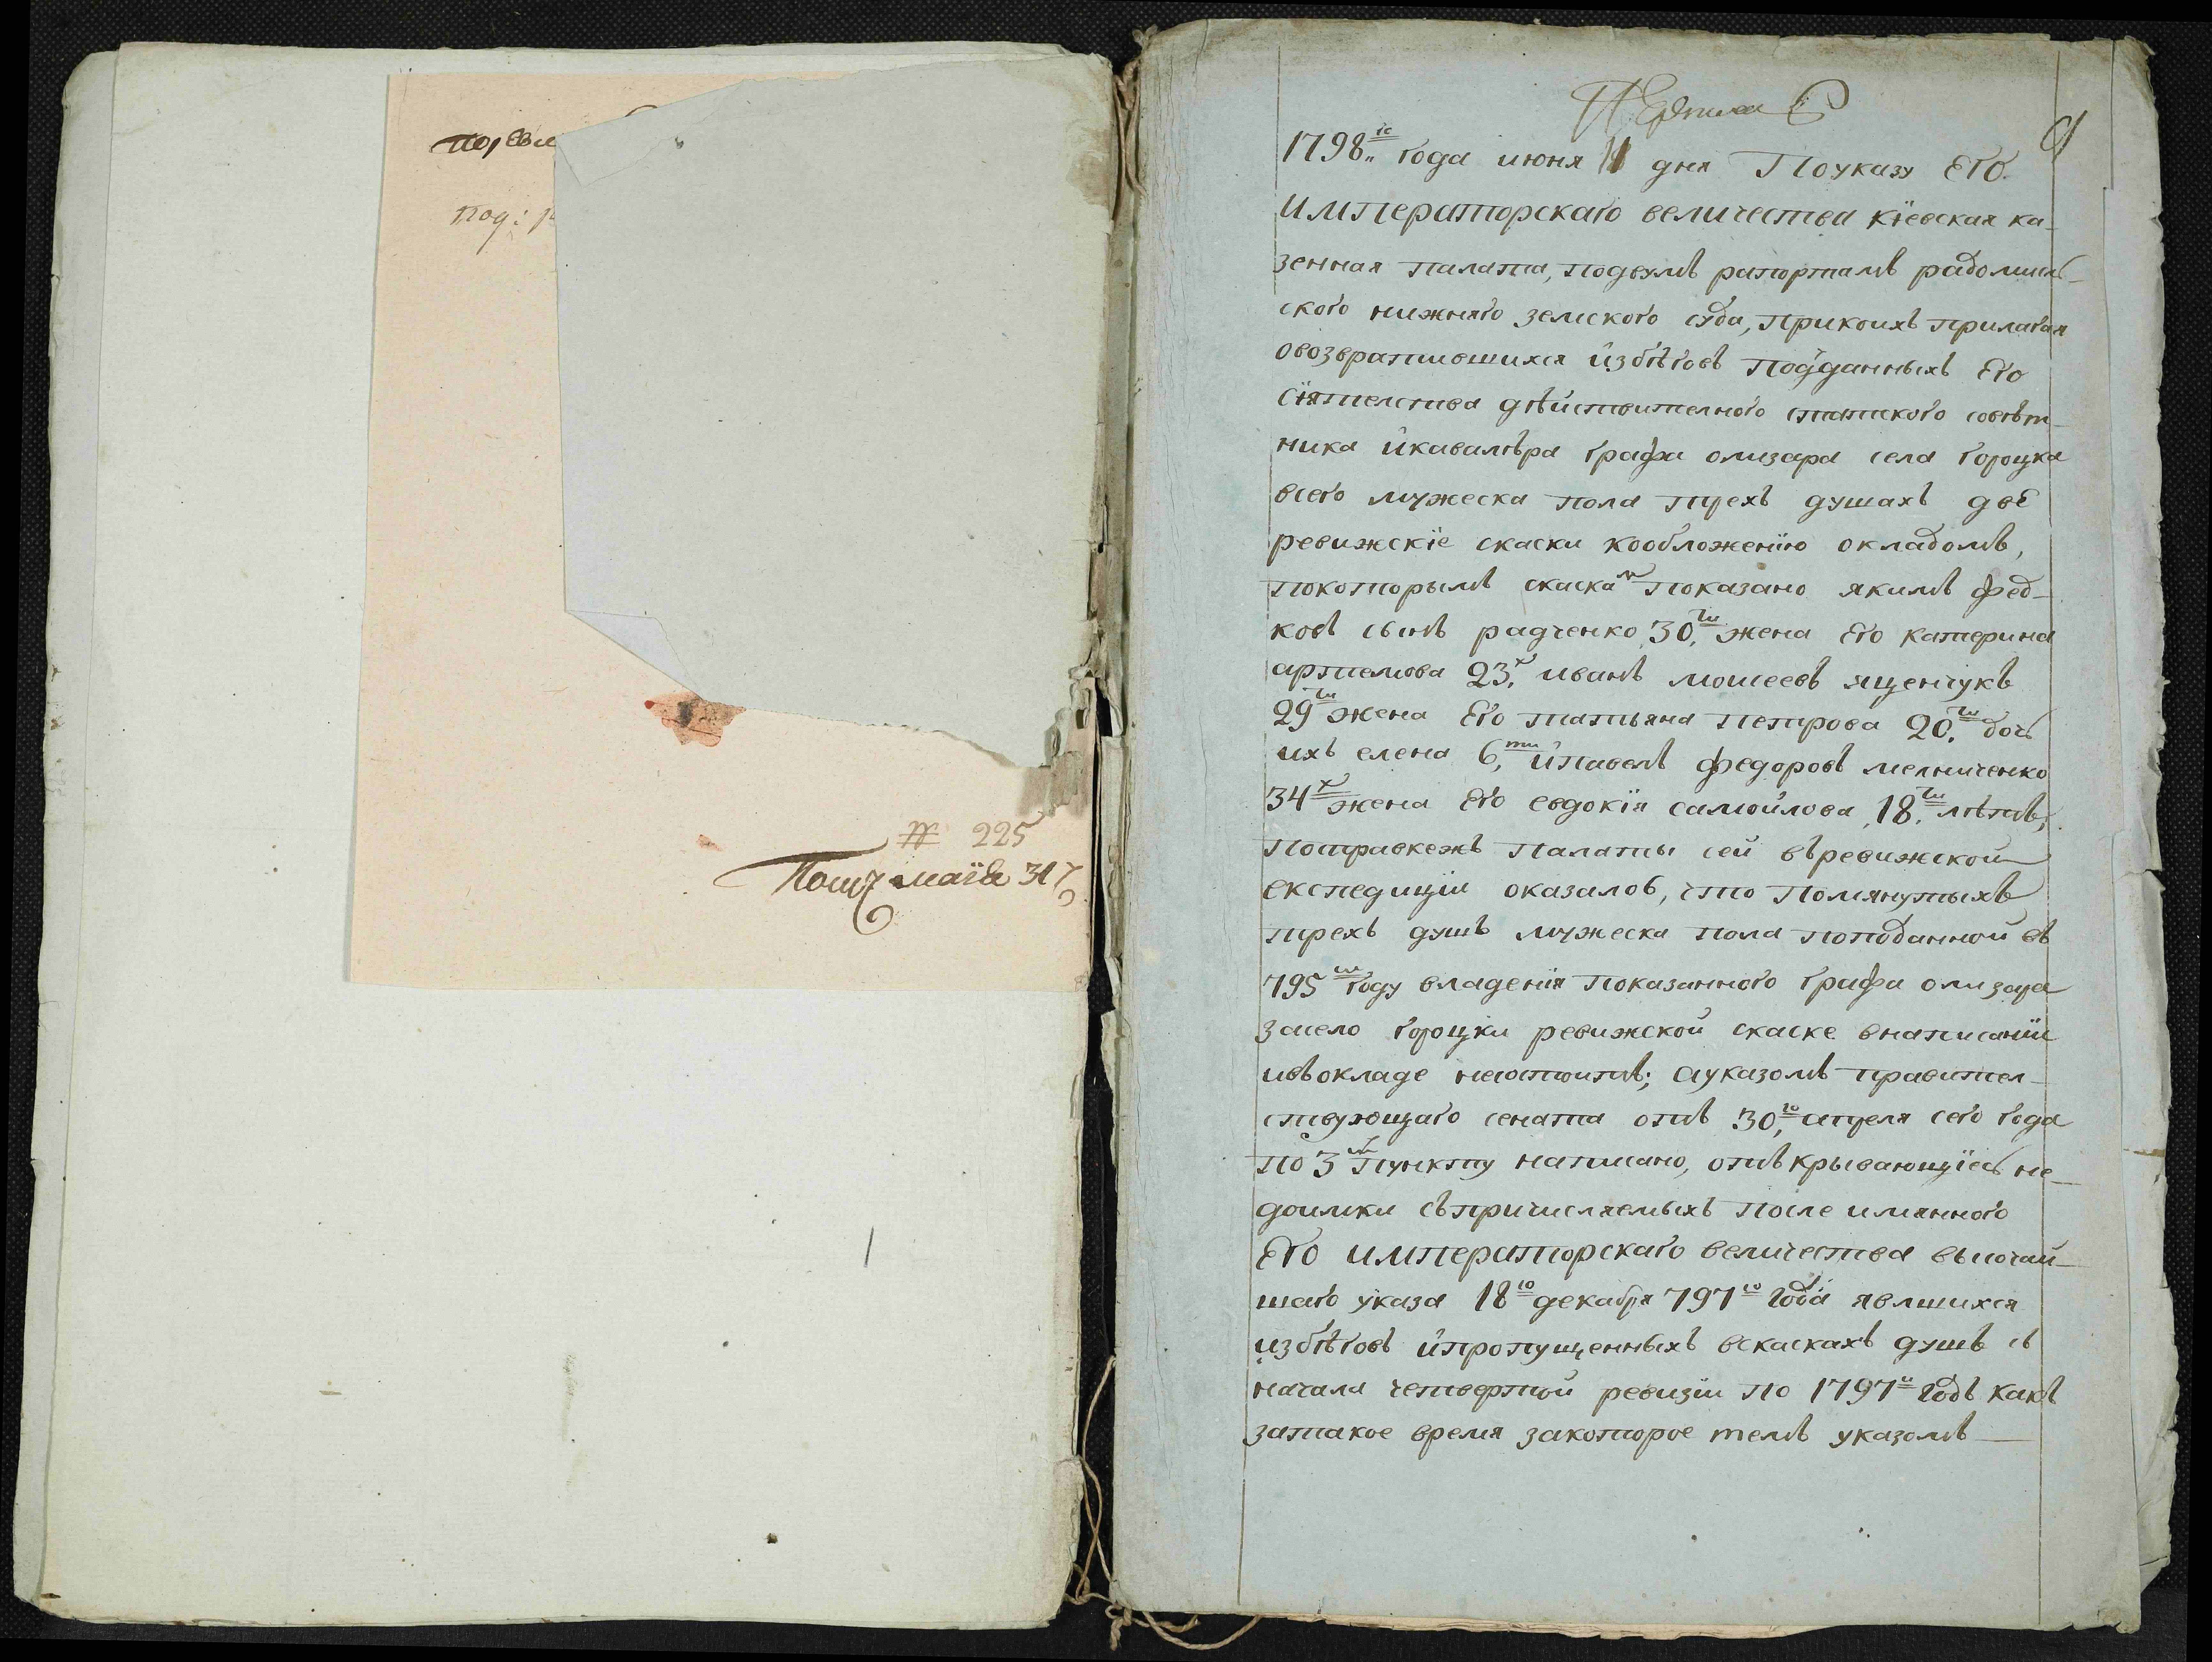 № 225
маїя 31
1798го года июня 11 дня Поуказу ЕГО
ИМПЕРАТОРСКАГО величества кїевская ка-
зенная палата, подвумъ рапортамъ радомисль-
ского нижняго земского суда, прикоихъ прилагая
овозвратившихся избѣговъ подданныхъ Его
Сїятелства дѣйствителного статского совѣт-
ника икавалѣра графа олизара села городка
всего мужеска пола трехъ душахъ две
ревижскїе скаски кообложенїю окладомъ,
покоторымъ скаскам показано якимъ фед-
ковъ сынъ радченко 30ти жена Его катерина
артемова 23х иванъ моисеевъ ященчукъ
29ти жена Его татьяна петрова 20ти дочь
ихъ елена 6ти ипавелъ федоровъ мелниченко
34х жена Его евдокїя самойлова 18ти лѣтъ;
Посправкежъ Палаты сей въревижской
експедицїи оказалось, что помянутыхъ
трехъ душъ мужеска пола поподанной въ
795м году владенїя показанного графа олизара
засело городки ревижской скаске внаписанїи
ивъокладе несостоитъ; ауказомъ правител-
ствующаго сената отъ 30го апреля сего года
по 3м пункту написано, отъкрывающїесь не-
доимки съпричисляемыхъ после имянного
ЕГО ИМПЕРАТОРСКАГО величества высочай-
шаго указа 18го декабря 797го года явлшихся
избѣговъ ипропущенныхъ вскаскахъ душъ съ
начала четвертой ревизїи по 1797й годъ какъ
затакое время закоторое темъ указомъ